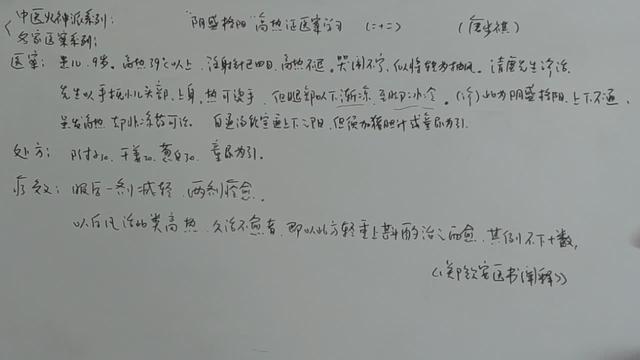 中医火神派系列: "阴盛格阳"高热证医案学习 (二十二) (唐步祺)
名家医案系列:
医案: 患儿,9岁。高热39℃以上,注射针已四日,高热不退。哭闹不宁,似将转为抽风。请唐先生诊治。
先生以手扪小儿头部、上身,热可烫手,但腿部以下渐凉,至脚冰冷。(诊)此为阴盛格阳,上下不通,
虽发高热,却非凉药可治。白通汤 宣通上下之阳,但须加猪胆汁或童尿为引。
处方: 附片30、干姜30、葱白30、童尿为引。
疗效: 服后一剂减轻,两剂痊愈。
以后凡治此类高热,久治不愈者,即以此方轻重上斟酌治之而愈,其例不下十数,
(《郑钦安医书阐释》)